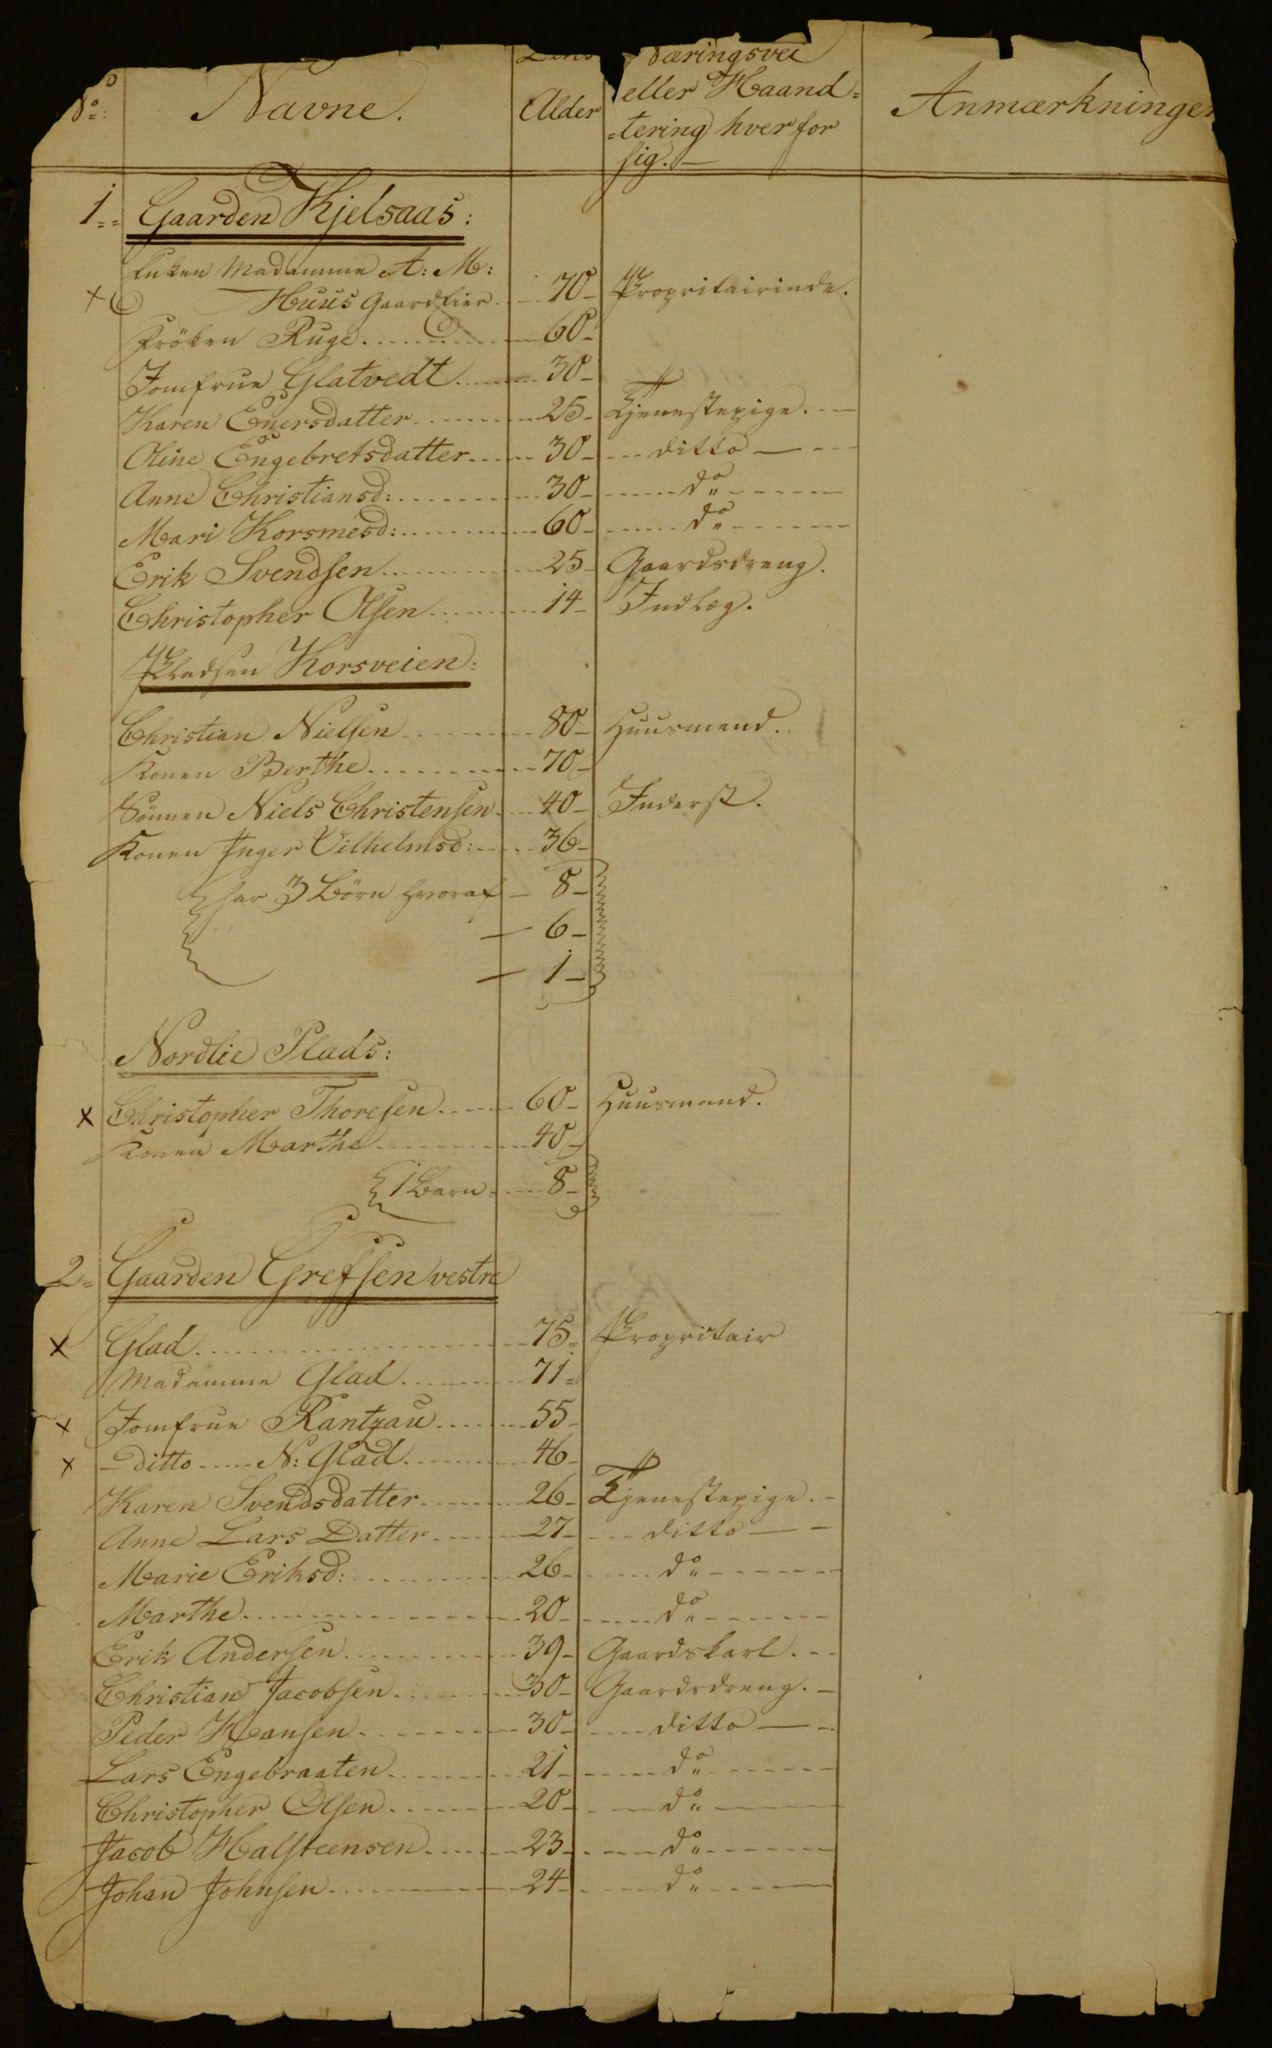 No: Navne. Alder Næringsvei eller Haand=
=tering hver for
sig. —
Anmærkninger
1 == Gaarden Kjelsaas:
Enken Madamme A: M:
Huus Gaardeier 70 Propritairinde.
Fröken Ruge 60
Jomfrue Glatvedt 30
Karen Enersdatter 25 Tjenestepige.
Oline Engebretsdatter 30 ditto
Anne Christiansd: 30 do
Mari Korsmesd: 60 do
Erik Svendsen 25 Gaardsdreng.
Christopher Olsen 14 Indlæg.
Pladsen Korsveien:
Christian Nielsen 80 Huusmand.
Konen Berthe 70
Sönnen Niels Christensen 40 Inderst.
Konen Inger Vilhelmsd: 36
har 3 Börn hvoraf 8
6
1
Nordlie Plads:
x Christopher Thoresen 60 Huusmand.
Konen Marthe 40
1 Barn 8
2= Gaarden Grefsen vestre
x Glad 75 Propritair
Madamme Glad 71
x Jomfrue Rantzau 55
x ditto N: Glad 46
Karen Svendsdatter 26 Tjenestepige.
Anne Lars Datter 27 ditto
Marie Eriksd: 26 do
Marthe 20 do
Erik Andersen 39 Gaardskarl.
Christian Jacobsen 30 Gaardsdreng.
Peder Hansen 30 ditto
Lars Engebraaten 21 do
Christopher Olsen 20 do
Jacob Halsteensen 23 do
Johan Johnsen 24 do